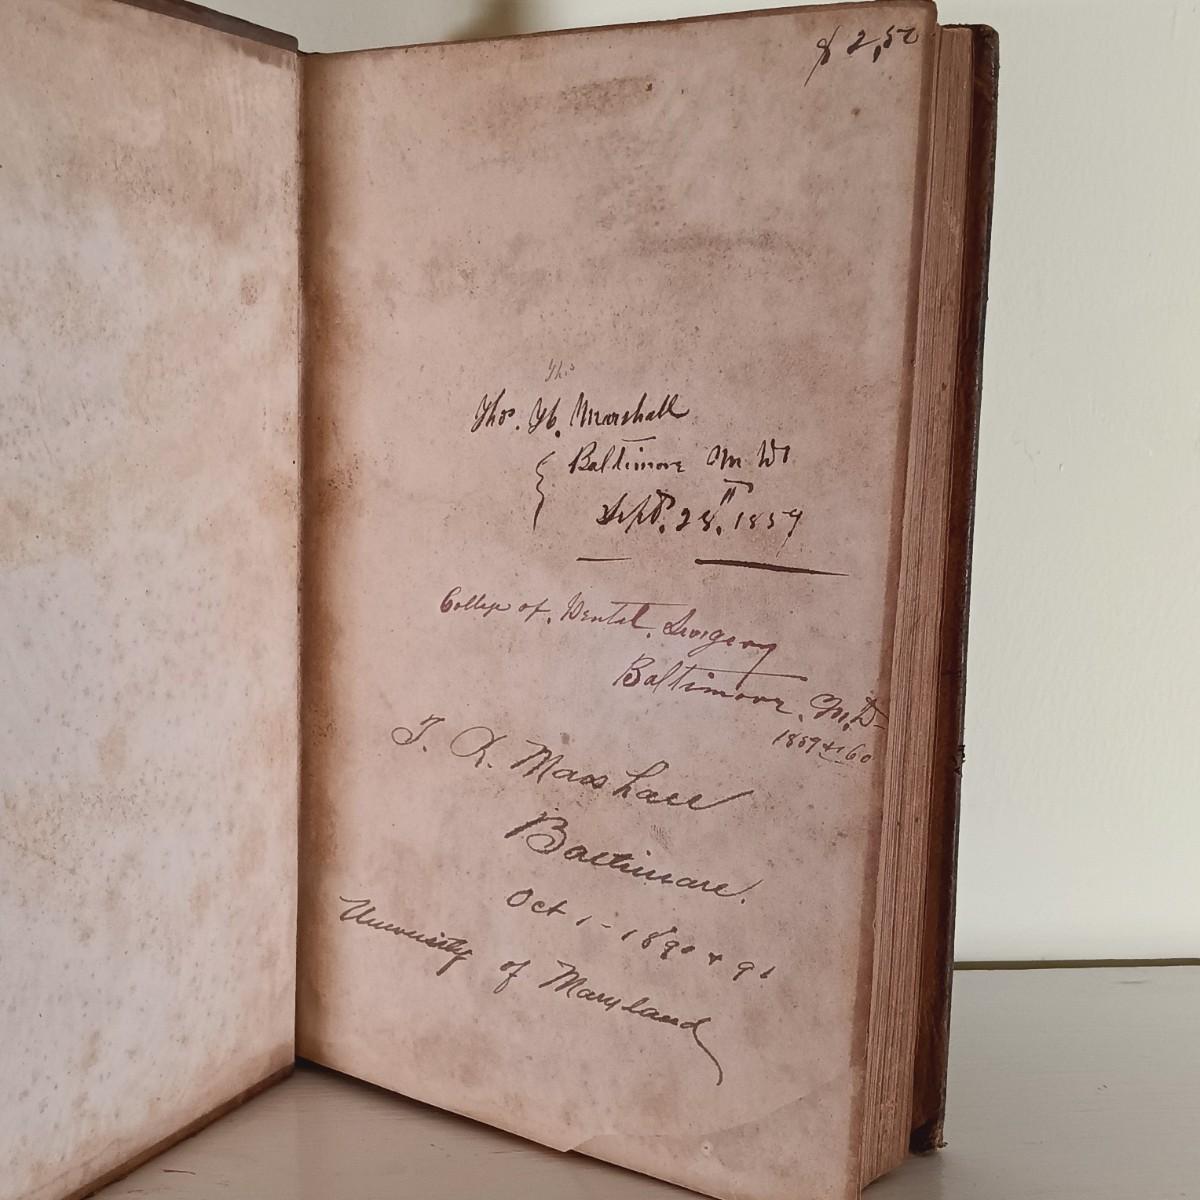 $ 2,50
Tho
Tho. H. Marshall
Baltimore M D
Sept. 28. 1859
College of. Dental. Surgery
Baltimore. M.D
1859 & 60
T. R. Marshall
Baltimore.
Oct 1 - 1890 & 91
University of Maryland